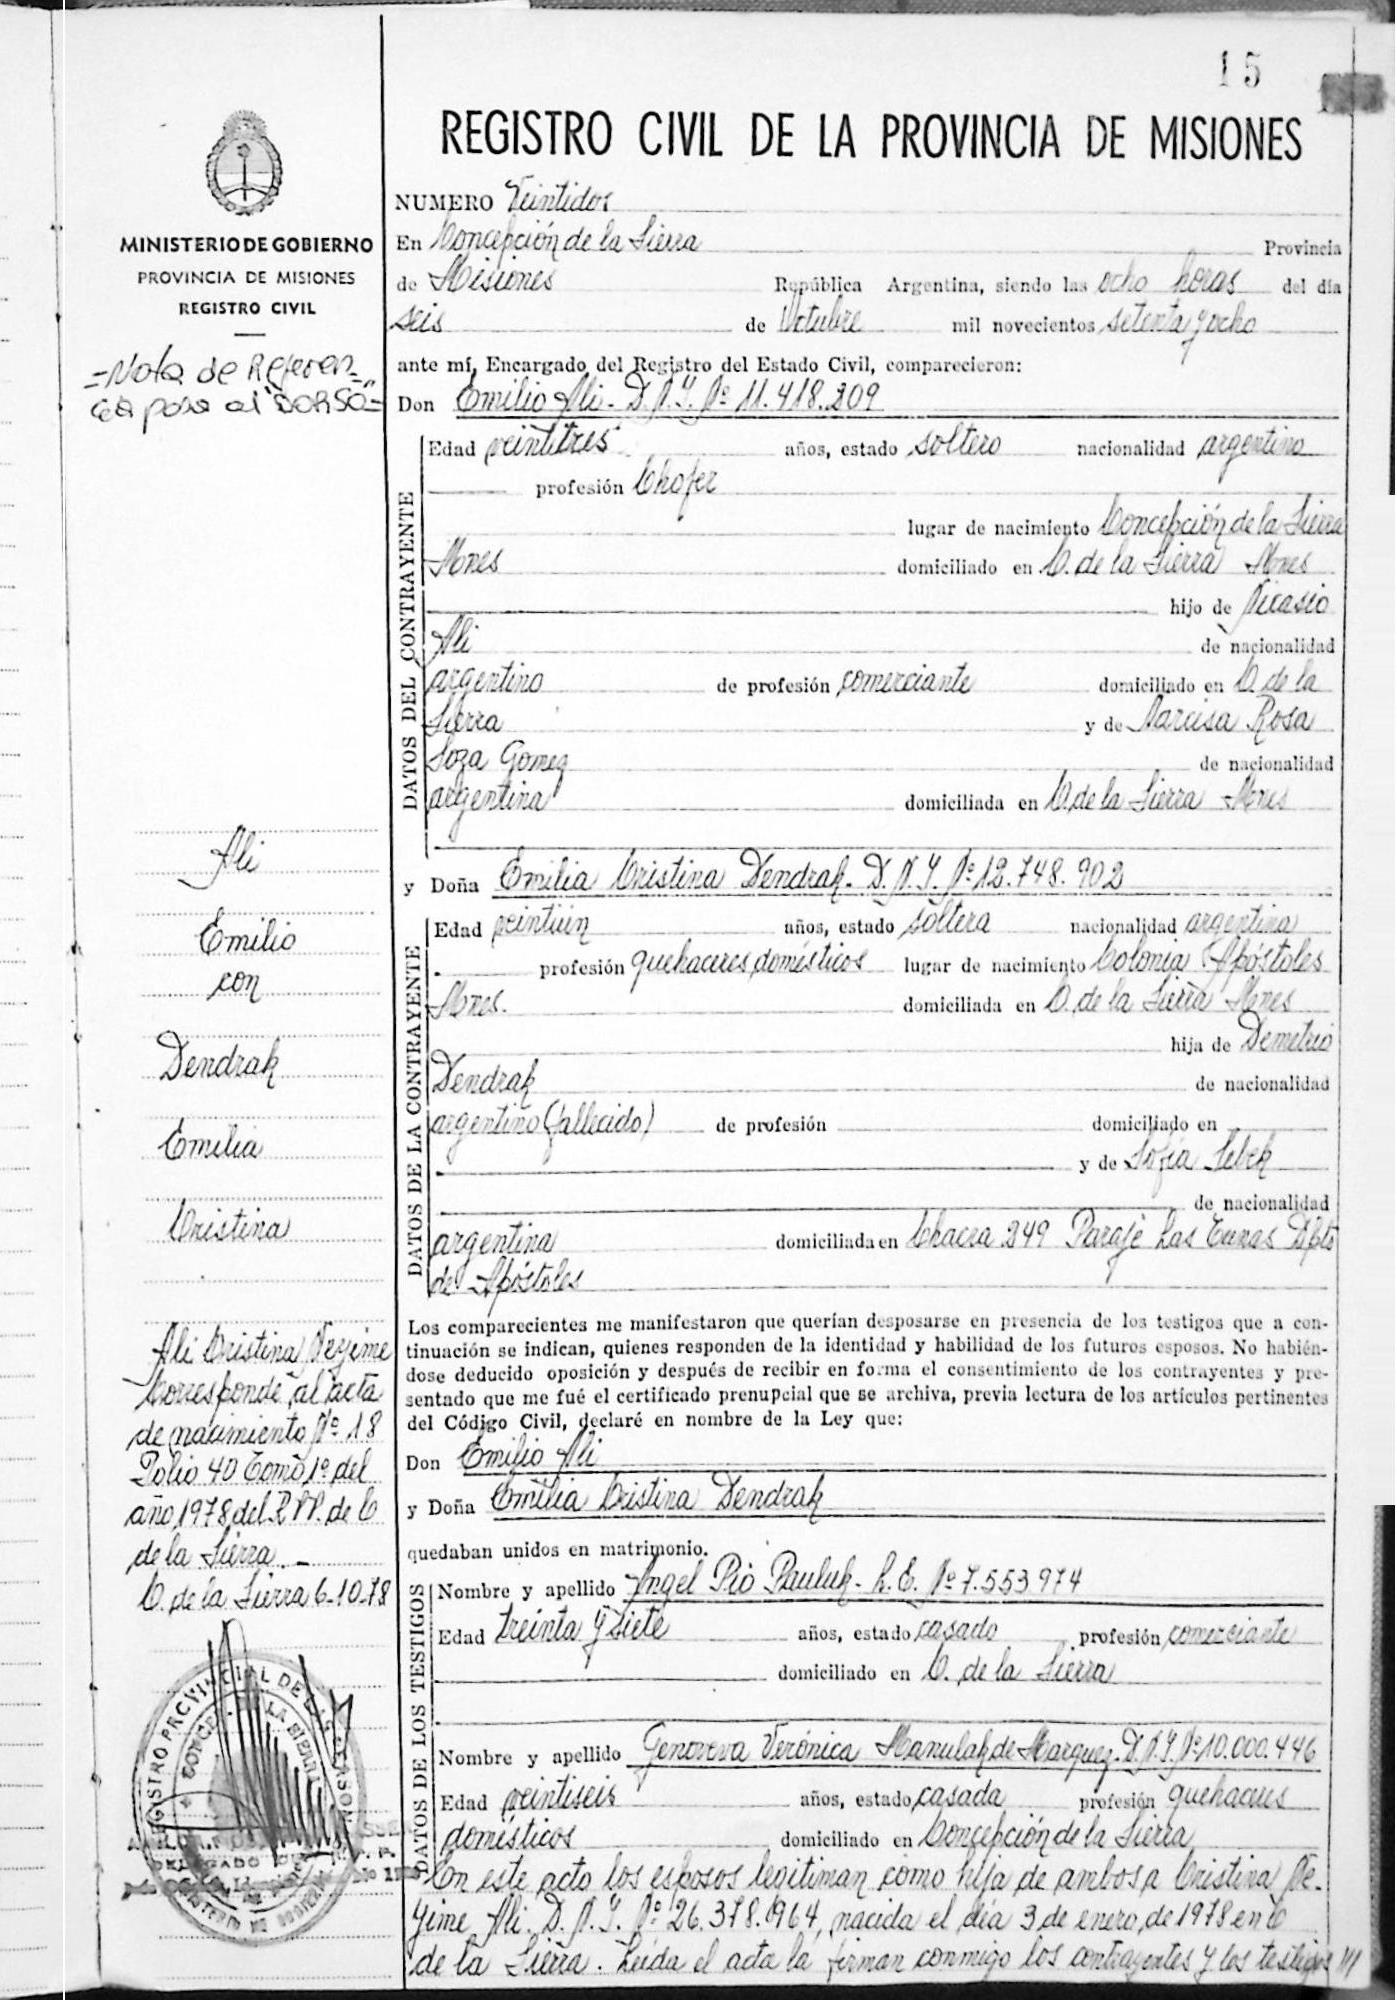 15
REGISTRO CIVIL DE LA PROVINCIA DE MISIONES
MINISTERIO DE GOBIERNO
PROVINCIA DE MISIONES
REGISTRO CIVIL
-Nota de Referen-
cia pasa al "DORSO"-
Ali
Emilio
con
Dendrak
Emilia
Cristina
Ali Cristina Neyime
Corresponde al acta
de nacimiento Nº 18
Folio 40 Tomo 1º del
año 1978 del R.PP. de C
de la Sierra.-
C. de la Sierra 6-10-78
NUMERO Veintidos
En Concepción de la Sierra Provincia
de Misiones República Argentina, siendo las ocho horas del día
seis de Octubre mil novecientos setenta y ocho
ante mí, Encargado del Registro del Estado Civil, comparecieron:
Don Emilio Ali- D.N.Y. Nº 11.418.209
DATOS DEL CONTRAYENTE
Edad veintitres años, estado soltero nacionalidad argentino
profesión Chofer
lugar de nacimiento Concepción de la Sierra
Mnes domiciliado en C. de la Sierra Mnes
hijo de Nicasio
Ali de nacionalidad
argentino de profesión comerciante domiciliado en C. de la
Sierra y de Narcisa Rosa
Soza Gomez de nacionalidad
argentina domiciliada en C. de la Sierra Mnes
y Doña Emilia Cristina Dendrak- D.N.Y. Nº 12.748.902
DATOS DE LA CONTRAYENTE
Edad veintiún años, estado soltera nacionalidad argentina
profesión quehaceres domésticos lugar de nacimiento Colonia Apóstoles
Mnes. domiciliada en C. de la Sierra Mnes
hija de Demetrio
Dendrak de nacionalidad
argentino (fallecido) de profesión domiciliado en
y de Sofía Sebek
de nacionalidad
argentina domiciliada en Chacra 249 Paraje Las Tunas Dpto
de Apóstoles
Los comparecientes me manifestaron que querían desposarse en presencia de los testigos que a con-
tinuación se indican, quienes responden de la identidad y habilidad de los futuros esposos. No habién-
dose deducido oposición y después de recibir en forma el consentimiento de los contrayentes y pre-
sentado que me fué el certificado prenupcial que se archiva, previa lectura de los artículos pertinentes
del Código Civil, declaré en nombre de la Ley que:
Don Emilio Ali
y Doña Emilia Cristina Dendrak
quedaban unidos en matrimonio.
DATOS DE LOS TESTIGOS
Nombre y apellido Angel Pio Pauluk- L.E. Nº 7.553974
Edad treinta y siete años, estado casado profesión comerciante
domiciliado en C. de la Sierra
Nombre y apellido Genoveva Verónica Manulak de Marquez. D.N.Y Nº 10.000.446
Edad veintiseis años, estado casada profesión quehaceres
domésticos domiciliado en Concepción de la Sierra
En este acto los esposos legitiman como hija de ambos a Cristina Ne-
yime Ali. D.N.Y. Nº 26.378.964, nacida el día 3 de enero de 1978 en C
de la Sierra. Leída el acta la firman conmigo los contrayentes y los testigos ///